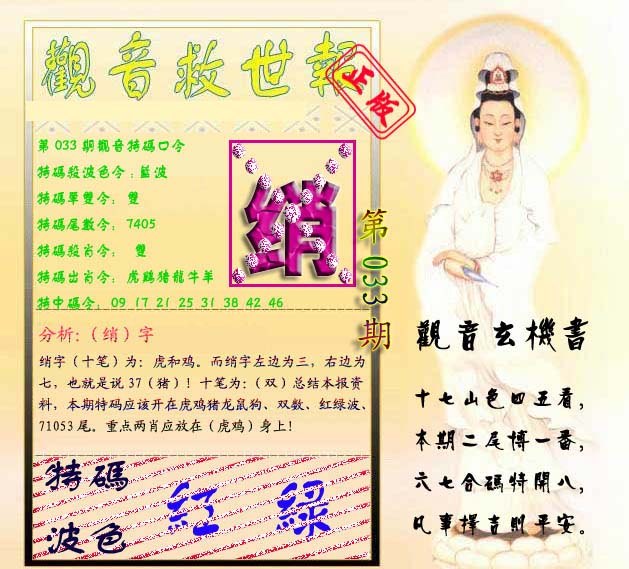 觀音救世報
正版
第 033 期觀音特碼口令
特碼殺波色令：藍波
特碼單雙令： 雙
特碼尾數令： 7405
特碼殺肖令： 雙
特碼出肖令： 虎鷄猪龍牛羊
特中碼令： 09 17 21 25 31 38 42 46
绡
第 033 期
分析：（绡）字
绡字（十笔）为：虎和鸡。而绡字左边为三，右边为
七，也就是说 37（猪）！十笔为：（双）总结本报资
料，本期特码应该开在虎鸡猪龙鼠狗、双数、红绿波、
71053 尾。重点两肖应放在（虎鸡）身上！
特碼
波色
紅 綠
觀音玄機書
十七山色四五看，
本期二尾博一番，
六七合碼特開八，
凡事擇吉則平安。